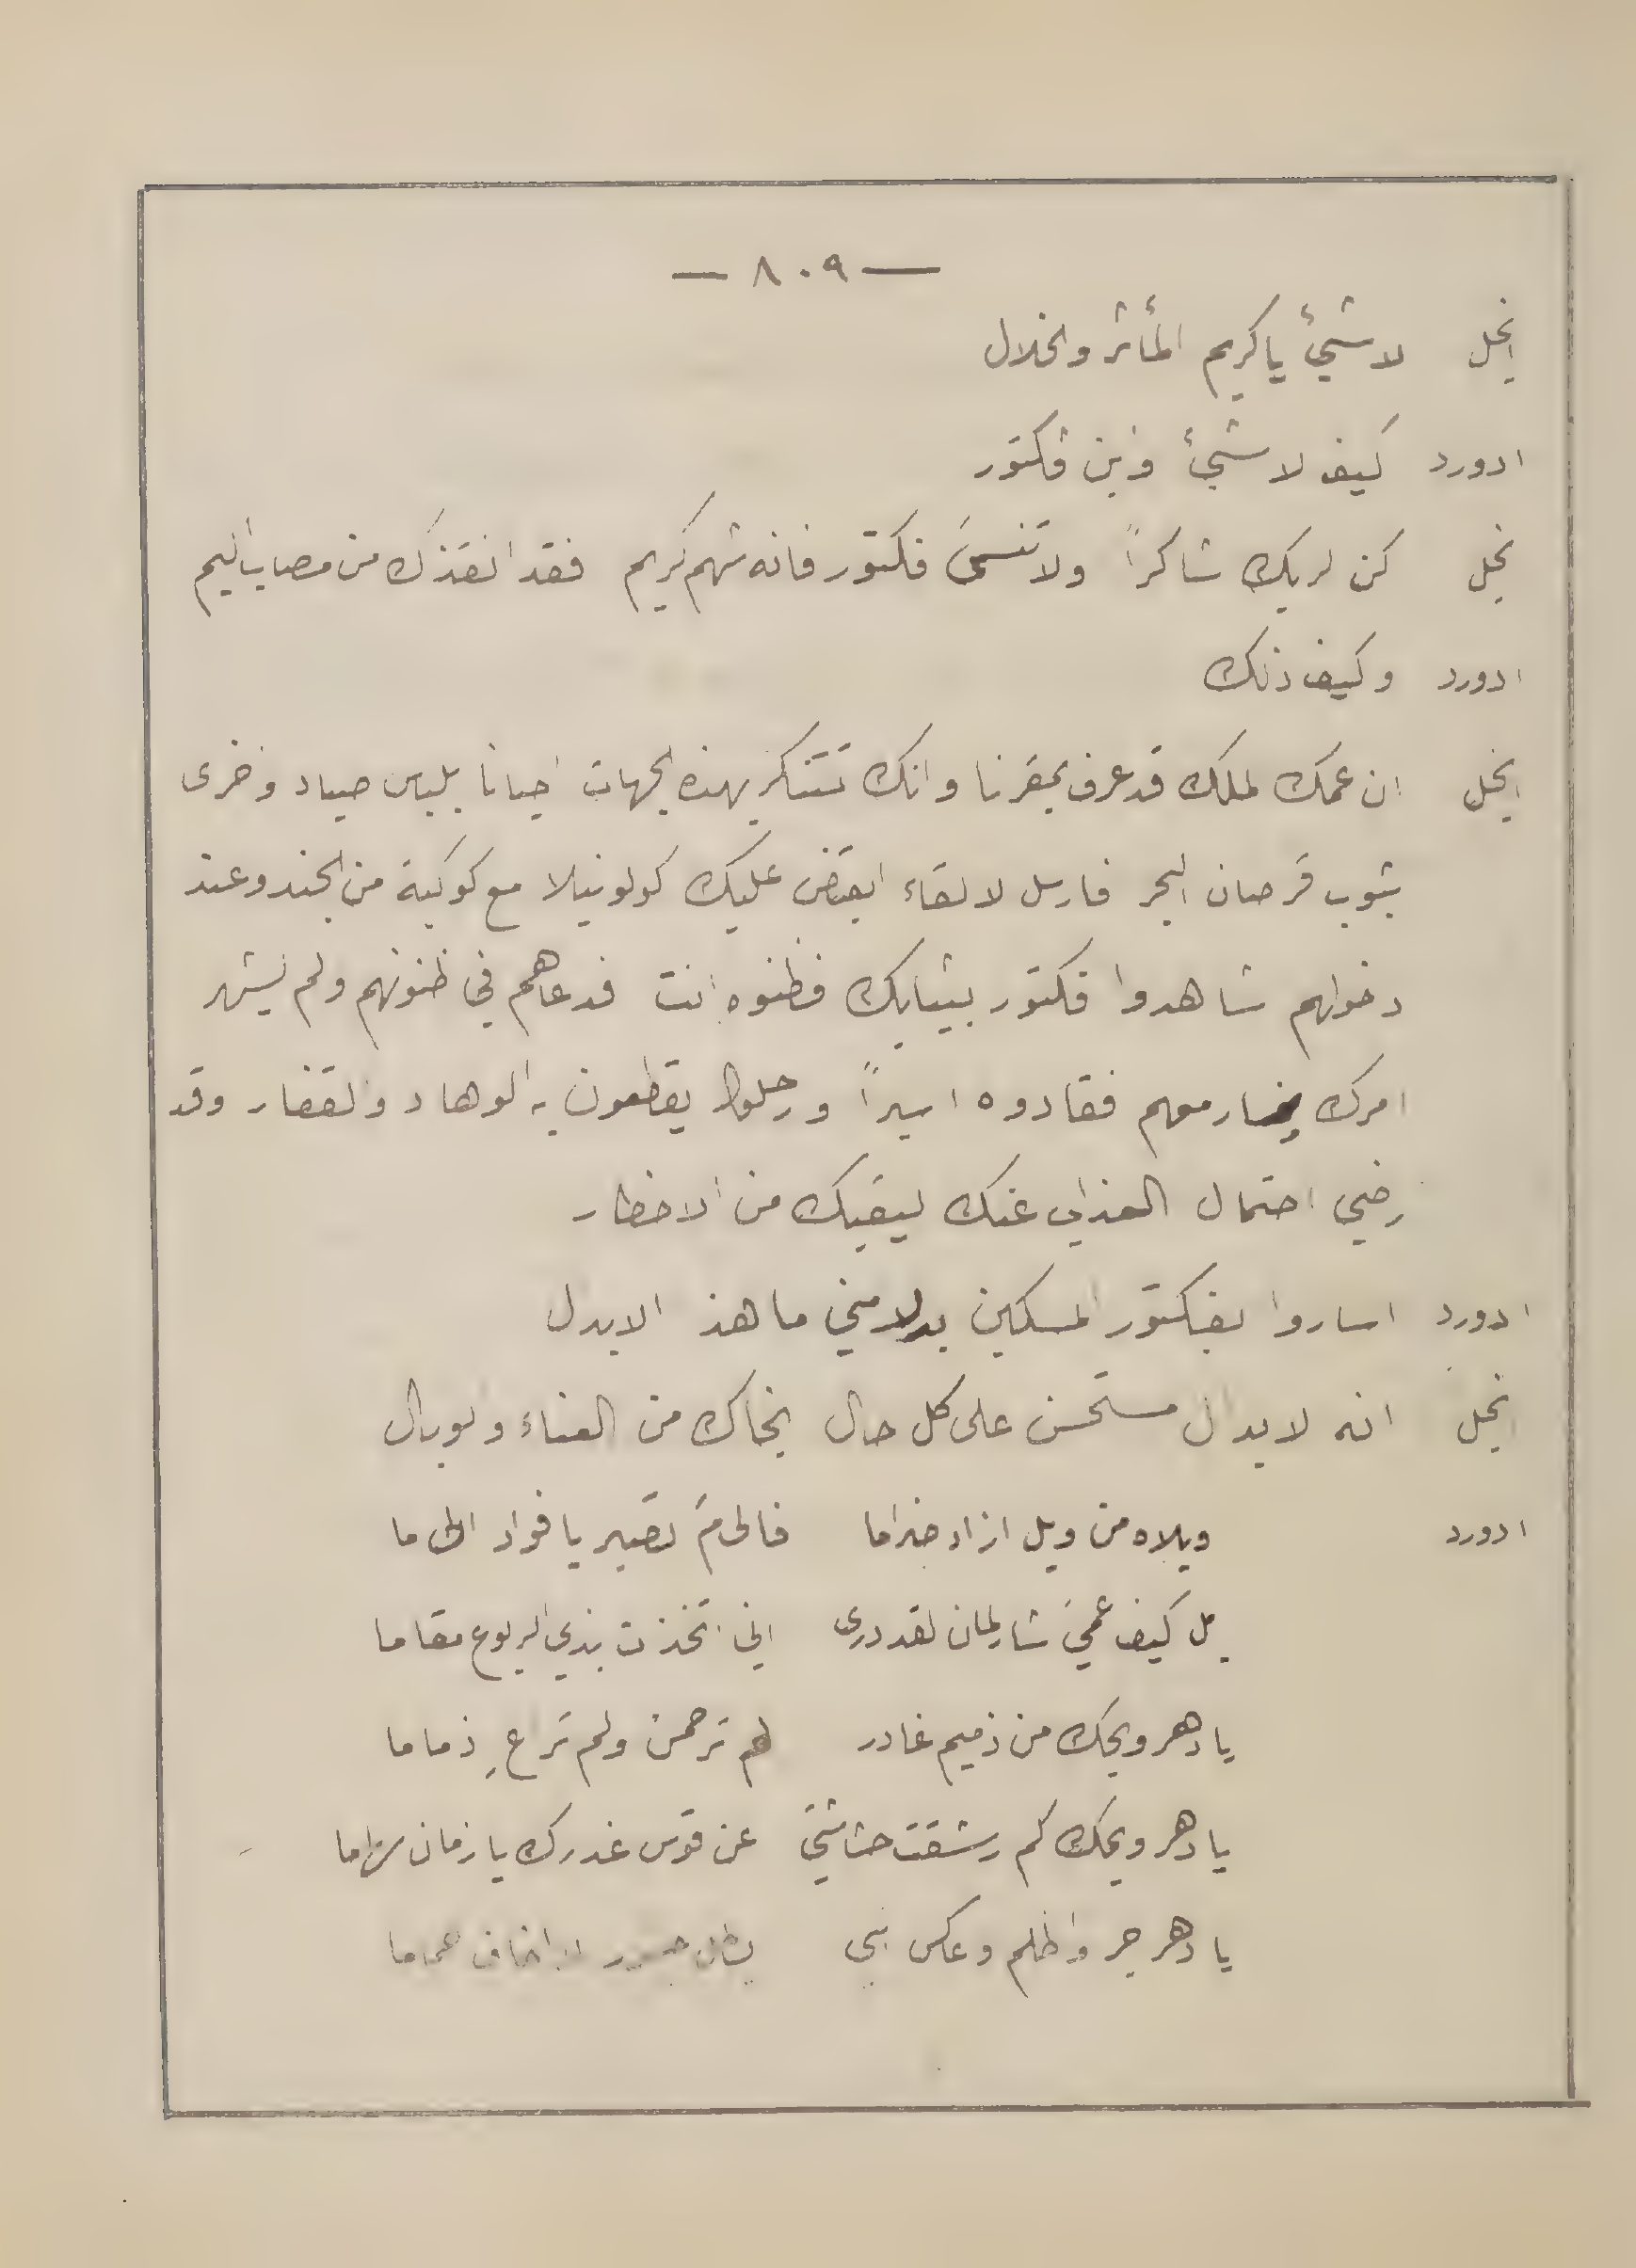 — ٨٠٩ —
انجل لا شيئ يا كريم المأثر والخلال
ادورد كيف لا شيئ واين فكتور
انجل كن لربك شاكراً ولا تنسىَ فكتور فانه شهم كريم فقد انقذك من مصاب اليم
ادورد وكيف ذلك
انجل ان عمك الملك قد عرف بمقرنا وانك تتنكر بهذه الجهات احيانا بلبس صياد واخرى
بثوب قرصان البحر فارسل لالقاء القبض عليك كولونيلا مع كوكبة من الجند وعند
دخولهم شاهدوا فكتور بثيابك فظنوه انت فدعاهم في ظنونهم ولم يشهر
امرك فسار معهم فقادوه اسيراً ورحلوا يقطعون به الوهاد والقفار وقد
رضي احتمال العذاب عنك ليقيك من الاخطار
ادورد اساروا بفكتور المسكين بدلا مني ما هذ الابدل
انجل انه لابدال مستحسن على كل حال نجاك من العناء والوبال
ادورد ويلاه من ويل ازاد ضراما فالىمَ تصبر يا فواد الى ما
بل كيف عميَ شارلمان لقد درى اني اتخذت بذي الربوع مقاما
يا دهر ويحك من ذميم غادر لم ترحمن ولم تراعِ ذماما
يا دهر ويحك كم رشقت حشاشتي عن قوس غدرك يا زمان سهاما
يا دهر جر واظلم وعاكس انني بطل جسور لا اخاف حماما